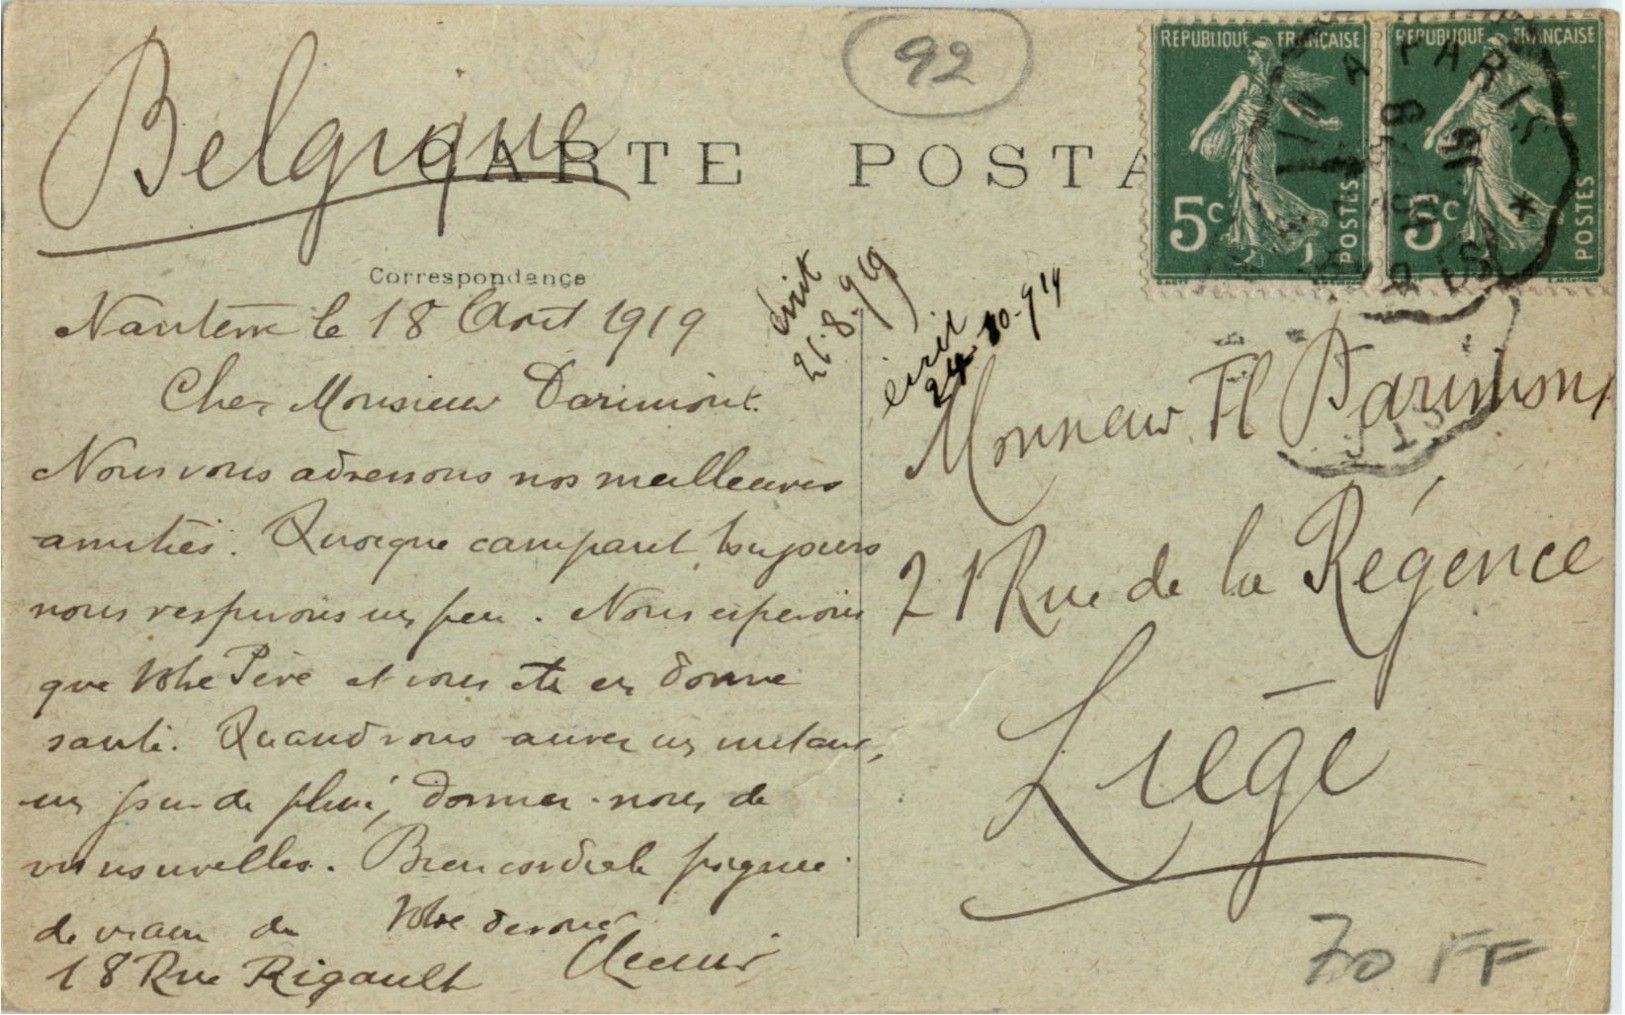 92
Belgique
CARTE POSTA
REPUBLIQUE FRANÇAISE
5c
POSTES
REPUBLIQUE FRANÇAISE
5c
POSTES
A PARIS
Correspondance
Nanterre le 18 Août 1919
écrit
26.8.919
écrit
Cher Monsieur Darimont.
Nous vous adressons nos meilleures
amitiés. Quoique campant toujours
nous respirons un peu. Nous espérons
que Votre Père et vous êtes en bonne
santé. Quand vous aurez un instant,
un peu de plus, donnez-nous de
vos nouvelles. Bien cordiale poignée
de mains de Votre dévoué
18 Rue Rigault
Monsieur Fl Darimont
21 Rue de la Régence
Liège
70 FF